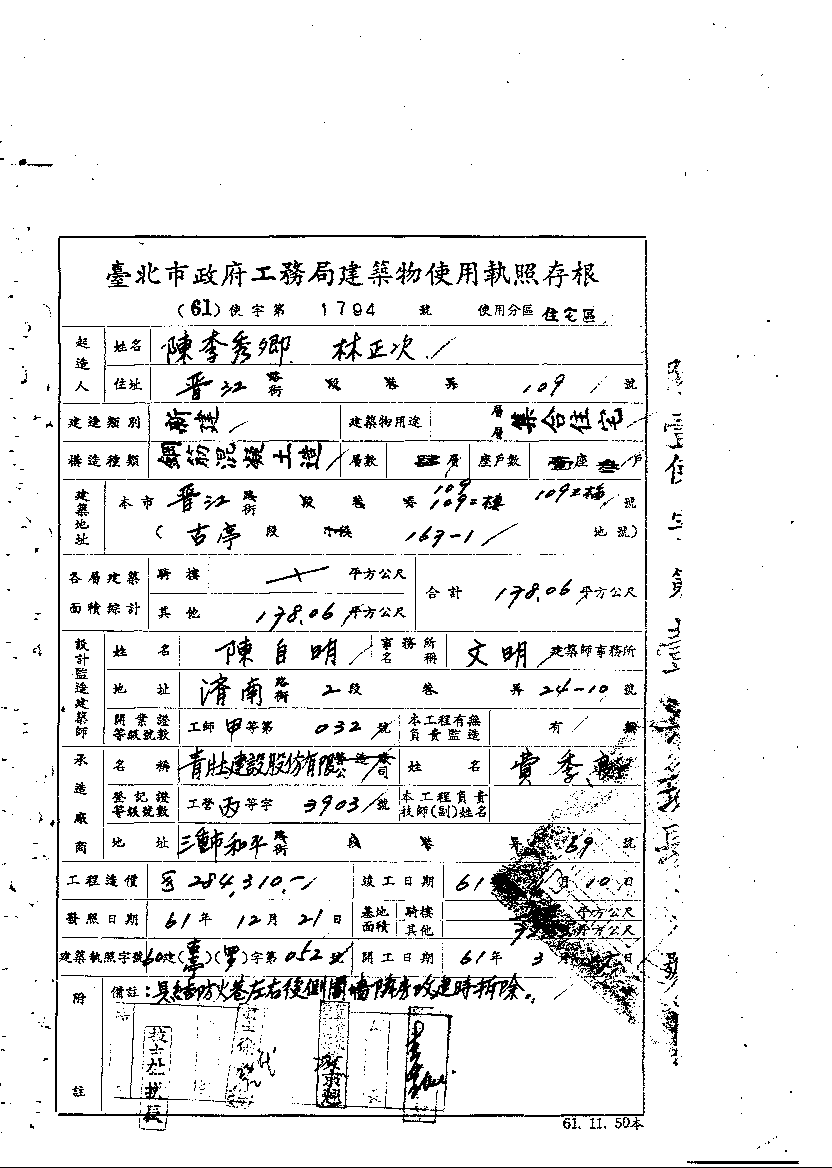 臺北市政府工務局建築物使用執照存根
(61)使字第 1794 號 使用分區 住宅區
起造人 姓名 陳李秀卿 林正次
住址 晋江 路街 段 巷 弄 109 號
建造類別 新建 建築物用途 層層 集合住宅
構造種類 鋼筋混凝土造 層數 層 座戶數 座 戶
建築地址 本市 晋江 路街 段 巷 弄 109 109=樓 109=樓 號
( 古亭 段 小段 163-1 地號)
各層建築面積綜計 騎樓 平方公尺 合計 138.06 平方公尺
其他 138.06 平方公尺
設計監造建築師 姓名 陳自明 事務所名稱 文明 建築師事務所
地址 濟南 路街 2 段 巷 弄 24-10 號
開業證等級號數 工師 甲 等第 032 號 本工程有無負責監造 有
承造廠商 名稱 青壯建設股份有限公司 姓名 黄季
登記證等級號數 工營 丙 等字 3903 號 本工程負責技師(副)姓名
地址 三重市和平 路街 段 巷 弄 69 號
工程造價 284,310.- 竣工日期 61 月 10 日
發照日期 61 年 12 月 21 日 基地面積 騎樓 平方公尺
其他 平方公尺
建築執照字號 60 建( )( )字第 052 號 開工日期 61 年 3 月 日
附註 備註:具結防火巷左右後側圍牆隣房改建時拆除。
61. 11. 50本